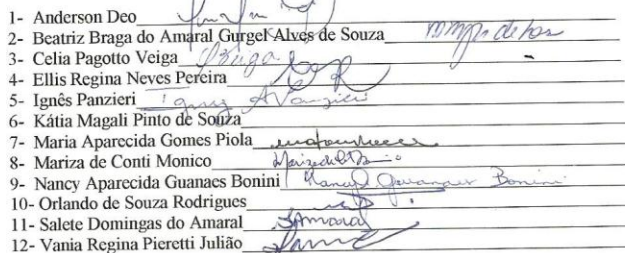 1- Anderson Deo
2- Beatriz Braga do Amaral Gurgel Alves de Souza
3- Celia Pagotto Veiga
4- Ellis Regina Neves Pereira
5- Ignês Panzieri
6- Kátia Magali Pinto de Souza
7- Maria Aparecida Gomes Piola
8- Mariza de Conti Monico
9- Nancy Aparecida Guanaes Bonini Nancy Guanaes Bonini
10- Orlando de Souza Rodrigues
11- Salete Domingas do Amaral SAmaral
12- Vania Regina Pieretti Julião